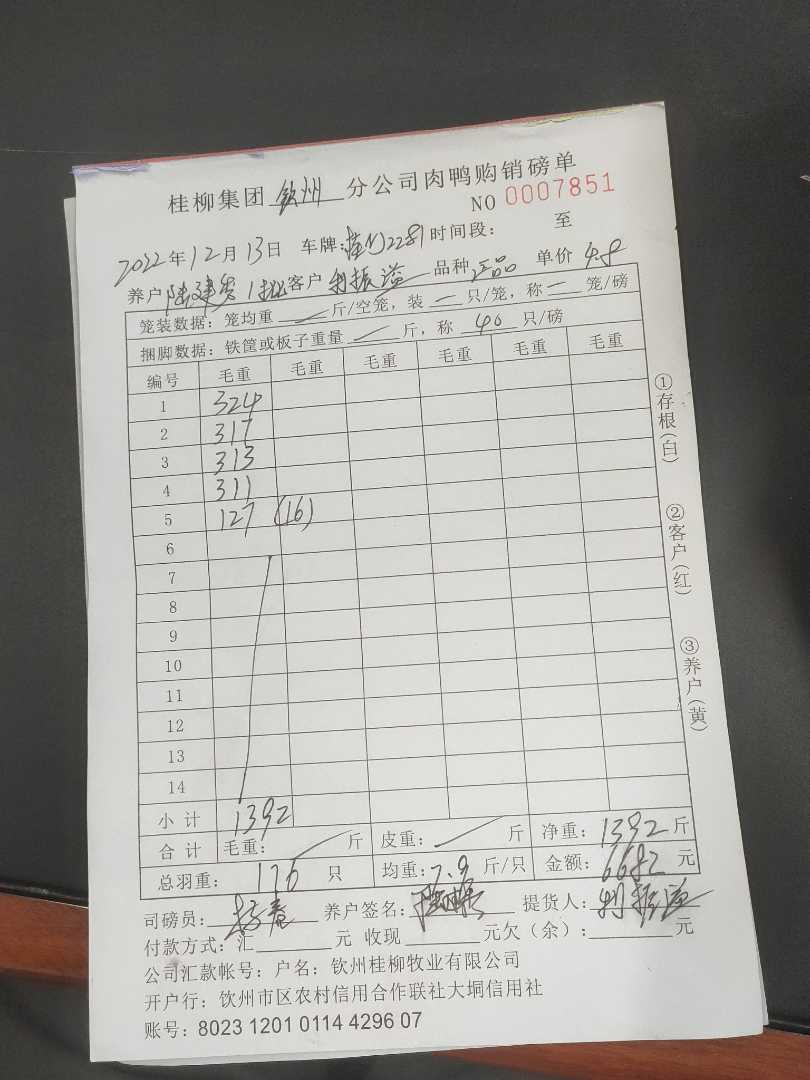 桂柳集团 钦州 分公司肉鸭购销磅单
NO 0007851
2022年12月13日 车牌: 2281 时间段: 至
养户 陆建 1批 客户 利振溢 品种 正品 单价 4.8
笼装数据: 笼均重 斤/空笼, 装 只/笼, 称 笼/磅
捆脚数据: 铁筐或板子重量 斤, 称 40 只/磅
编号 毛重 毛重 毛重 毛重 毛重 毛重
1 324
2 317
3 313
4 311
5 127 (16)
6
7
8
9
10
11
12
13
14
小计 1392
合计 毛重: 斤 皮重: 斤 净重: 1392 斤
总羽重: 176 只 均重: 7.9 斤/只 金额: 6682 元
司磅员: 养户签名: 提货人: 利振溢
付款方式: 汇 元 收现 元欠(余): 元
公司汇款帐号: 户名: 钦州桂柳牧业有限公司
开户行: 钦州市区农村信用合作联社大垌信用社
账号: 8023 1201 0114 4296 07
①存根(白)
②客户(红)
③养户(黄)